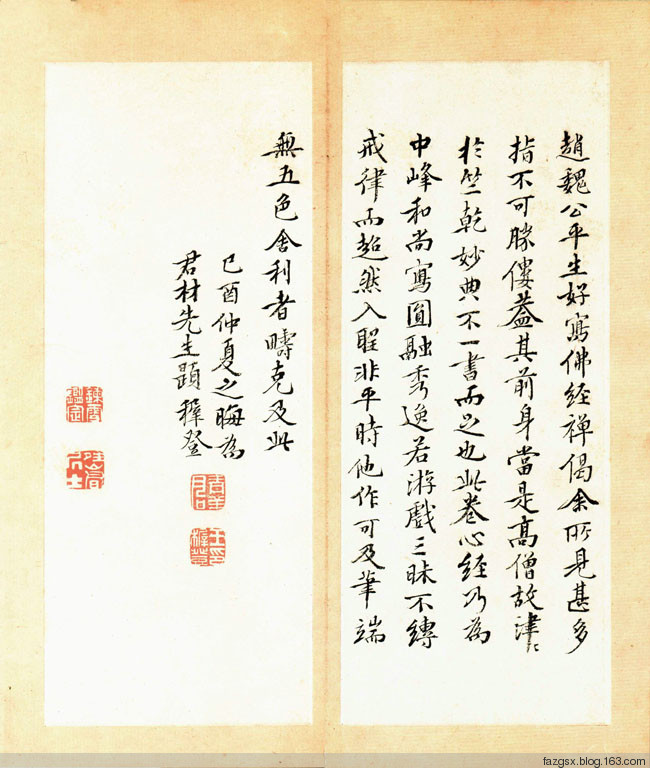 趙魏公平生好寫佛經禅偈余所見甚多
指不可勝僂蓋其前身當是高僧故津〻
於竺乾妙典不一書而足也此卷心經乃為
中峰和尚寫圓融秀逸若游戲三昧不縛
戒律而超然入聖非平時他作可及筆端
無五色舍利者疇克及此
己酉仲夏之晦為
君材先生題穉登
王印穉登
fazgsx.blog.163.com